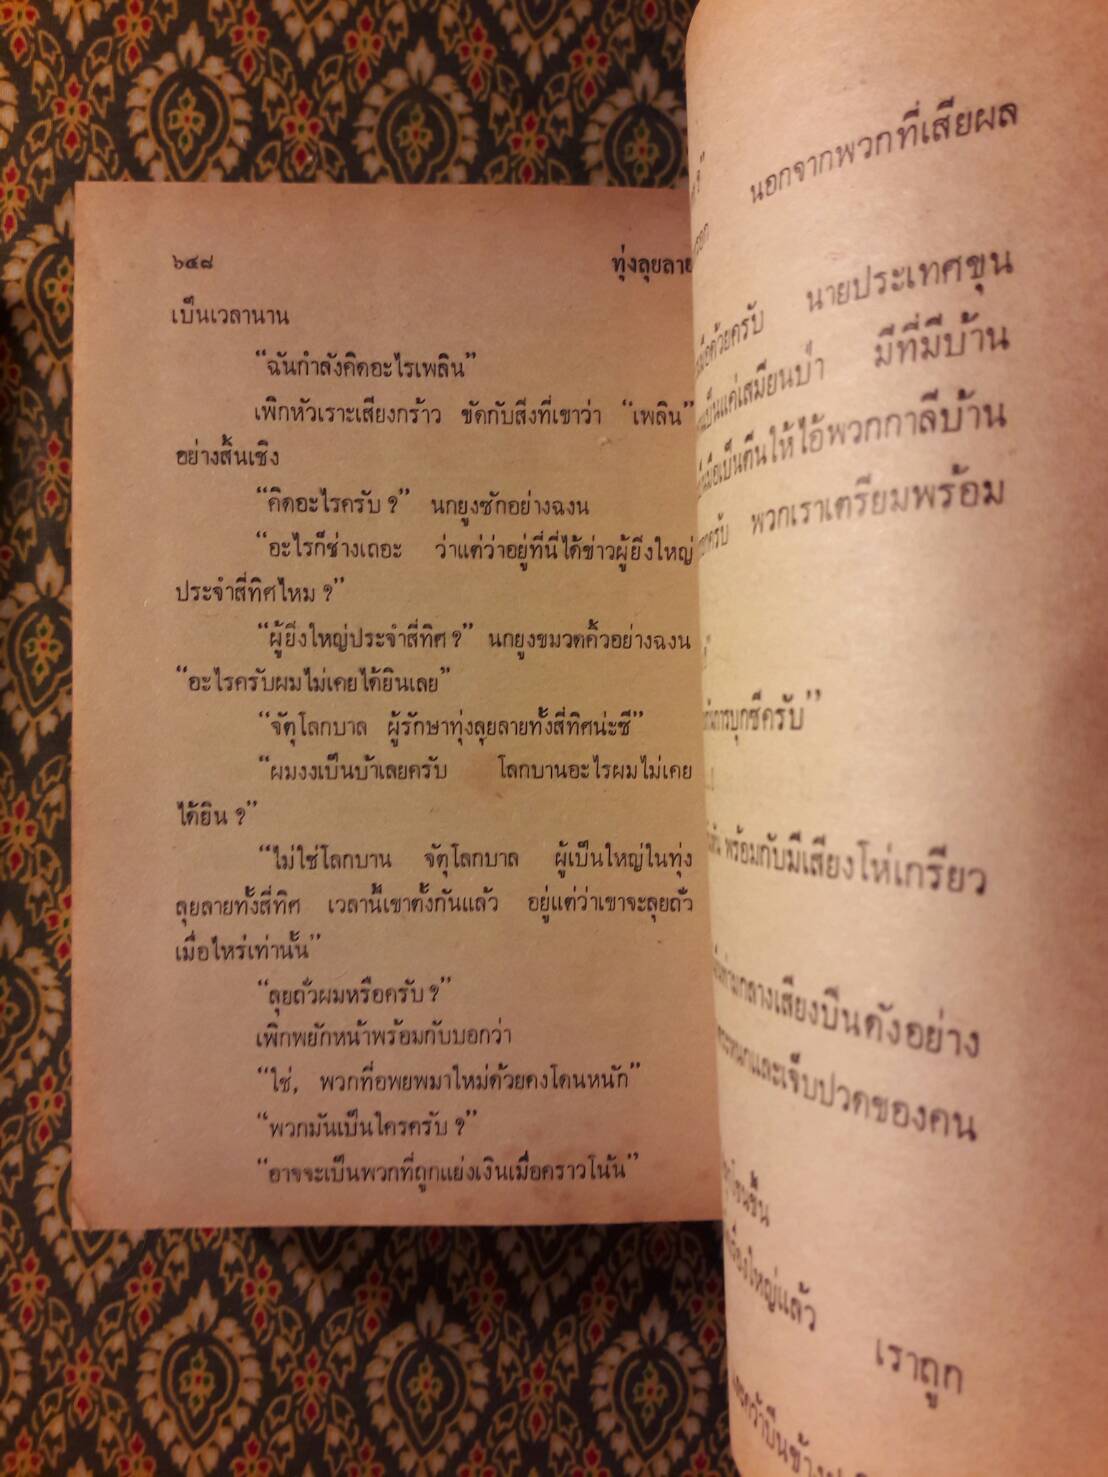 ๖๔๘ ทุ่งลุยลาย
เป็นเวลานาน
“ฉันกำลังคิดอะไรเพลิน”
เพิกหัวเราะเสียงกร้าว ขัดกับสิ่งที่เขาว่า “เพลิน”
อย่างสิ้นเชิง
“คิดอะไรครับ ?” นกยูงซักอย่างฉงน
“อะไรก็ช่างเถอะ ว่าแต่ว่าอยู่ที่นี่ได้ข่าวผู้ยิ่งใหญ่
ประจำสี่ทิศไหม ?”
“ผู้ยิ่งใหญ่ประจำสี่ทิศ ?” นกยูงขมวดคิ้วอย่างฉงน
“อะไรครับผมไม่เคยได้ยินเลย”
“จัตุโลกบาล ผู้รักษาทุ่งลุยลายทั้งสี่ทิศน่ะซี”
“ผมงงเป็นบ้าเลยครับ โลกบานอะไรผมไม่เคย
ได้ยิน ?”
“ไม่ใช่โลกบาน จัตุโลกบาล ผู้เป็นใหญ่ในทุ่ง
ลุยลายทั้งสี่ทิศ เวลานี้เขาตั้งกันแล้ว อยู่แต่ว่าเขาจะลุยถั่ว
เมื่อไหร่เท่านั้น”
“ลุยถั่วผมหรือครับ ?”
เพิกพยักหน้าพร้อมกับบอกว่า
“ใช่, พวกที่อพยพมาใหม่ด้วยคงโดนหนัก”
“พวกมันเป็นใครครับ ?”
“อาจจะเป็นพวกที่ถูกแย่งเงินเมื่อคราวโน้น”
นอกจากพวกที่เสียผล
ด้วยครับ นายประเทศขุน
เป็นแค่เสมียนบ่ำ มีที่มีบ้าน
มือเป็นตีนให้ไอ้พวกกาลีบ้าน
ครับ พวกเราเตรียมพร้อม
การบุกซีครับ”
พร้อมกับมีเสียงโห่เกรียว
ท่ามกลางเสียงปืนดังอย่าง
และเจ็บปวดของคน
ขึ้น
ใหญ่แล้ว เราถูก
คว้าปืนข้าง